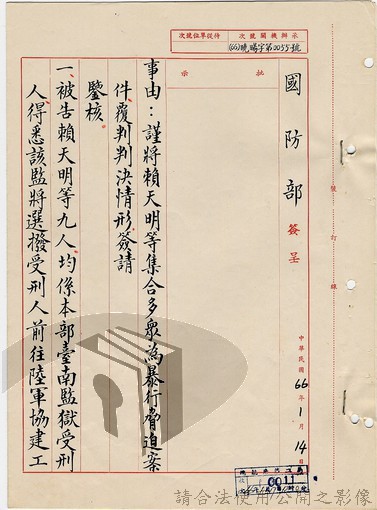 次號位單從侍
次號關機辦示
(66)曉賜字第0055號
批
示
國防部
簽呈
中華民國66年1月14日
事由：謹將賴天明等集合多眾為暴行脅迫案
件覆判判決情形簽請
鑒核
一、被告賴天明等九人，均係本部臺南監獄受刑
人得悉該監將選撥受刑人前往陸軍協建工
號
訂
線
0011
請合法使用公開之影像